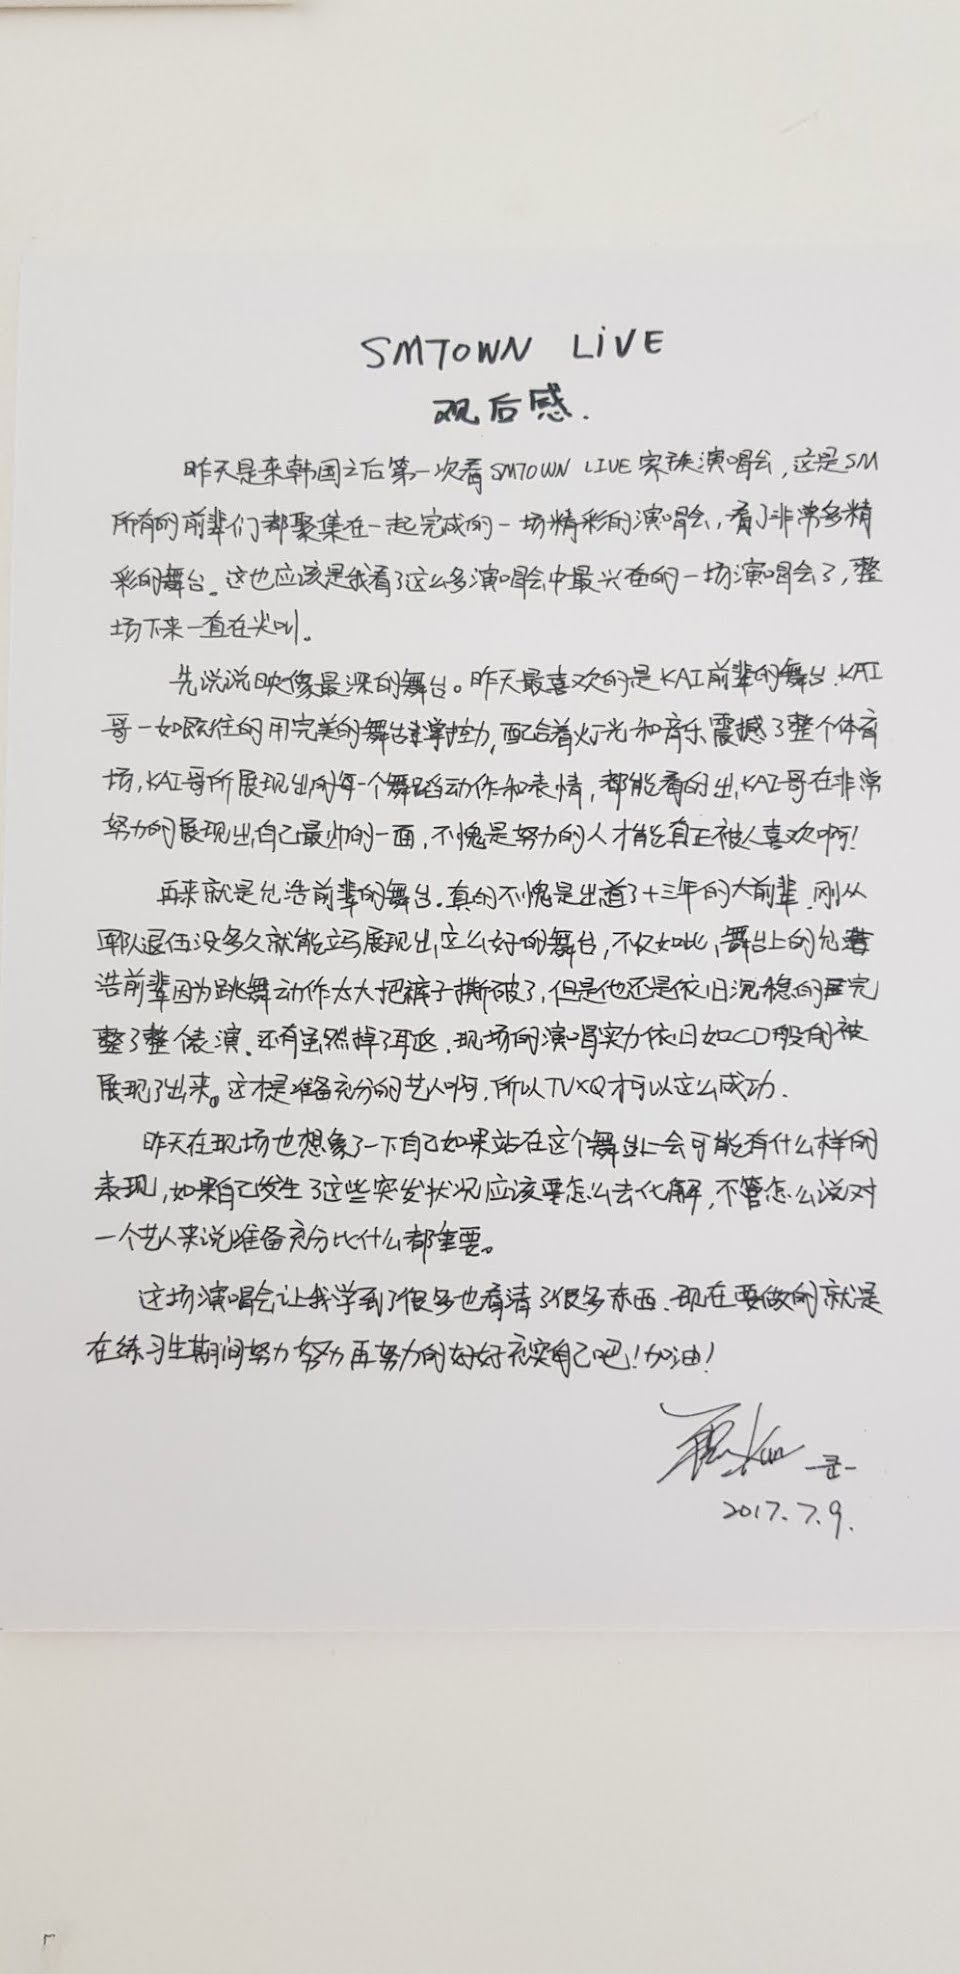 SMTOWN LiVE
观后感.
昨天是来韩国之后第一次看SMTOWN LIVE家族演唱会,这是SM
所有的前辈们都聚集在一起完成的一场精彩的演唱会,看了非常多精
彩的舞台。这也应该是我看了这么多演唱会中最兴奋的一场演唱会了,整
场下来一直在尖叫。
先说说映像最深的舞台。昨天最喜欢的是KAI前辈的舞台.KAI
哥一如既往的用完美的舞台掌控力,配合着灯光和音乐震撼了整个体育
场,KAI哥所展现出的每一个舞蹈动作和表情,都能看的出,KAI哥在非常
努力的展现出自己最帅的一面,不愧是努力的人才能真正被人喜欢啊!
再来就是允浩前辈的舞台.真的不愧是出道了十三年的大前辈.刚从
军队退伍没多久就能立马展现出这么好的舞台,不仅如此,舞台上的允
浩前辈因为跳舞动作太大把裤子撕破了,但是他还是依旧沉稳的完
整了整个表演.还有虽然掉了耳返.现场的演唱实力依旧如CD般的被
展现了出来。这才是准备充分的艺人啊,所以TVXQ才可以这么成功.
昨天在现场也想象了一下自己如果站在这个舞台上会可能有什么样的
表现,如果自己发生了这些突发状况应该要怎么去化解,不管怎么说对
一个艺人来说准备充分比什么都重要。
这场演唱会让我学到了很多也看清了很多东西.现在要做的就是
在练习生期间努力努力再努力的好好充实自己吧!加油!
Kun -쿤-
2017.7.9.